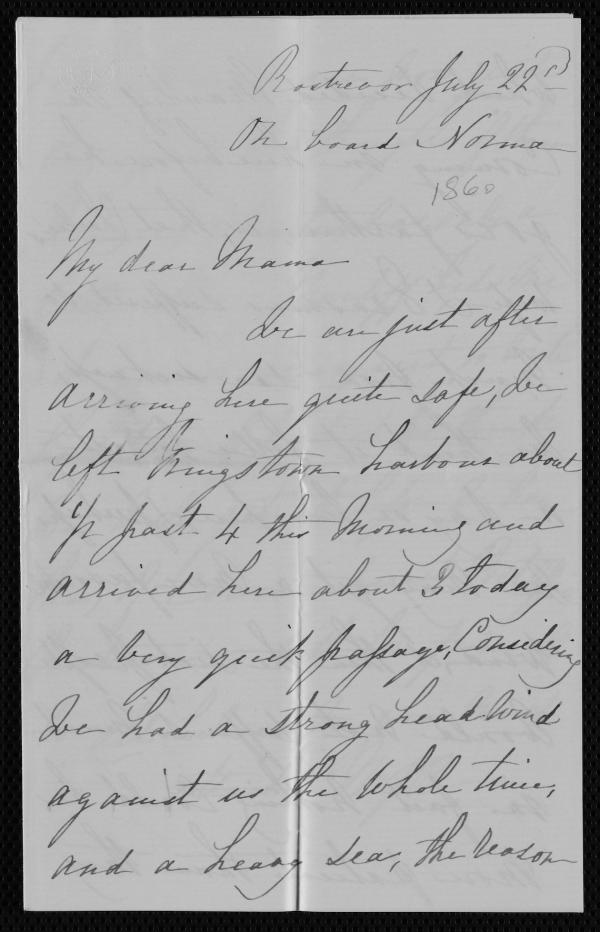 Rostrevor July 22nd
On board Norma
1860
My dear Mama
We are just after
arriving here quite safe, We
left Kingstown harbour about
1/2 past 4 this Morning and
arrived here about 3 today
a very quick passage, Considering
We had a strong head Wind
against us the Whole time,
and a heavy sea, the reason